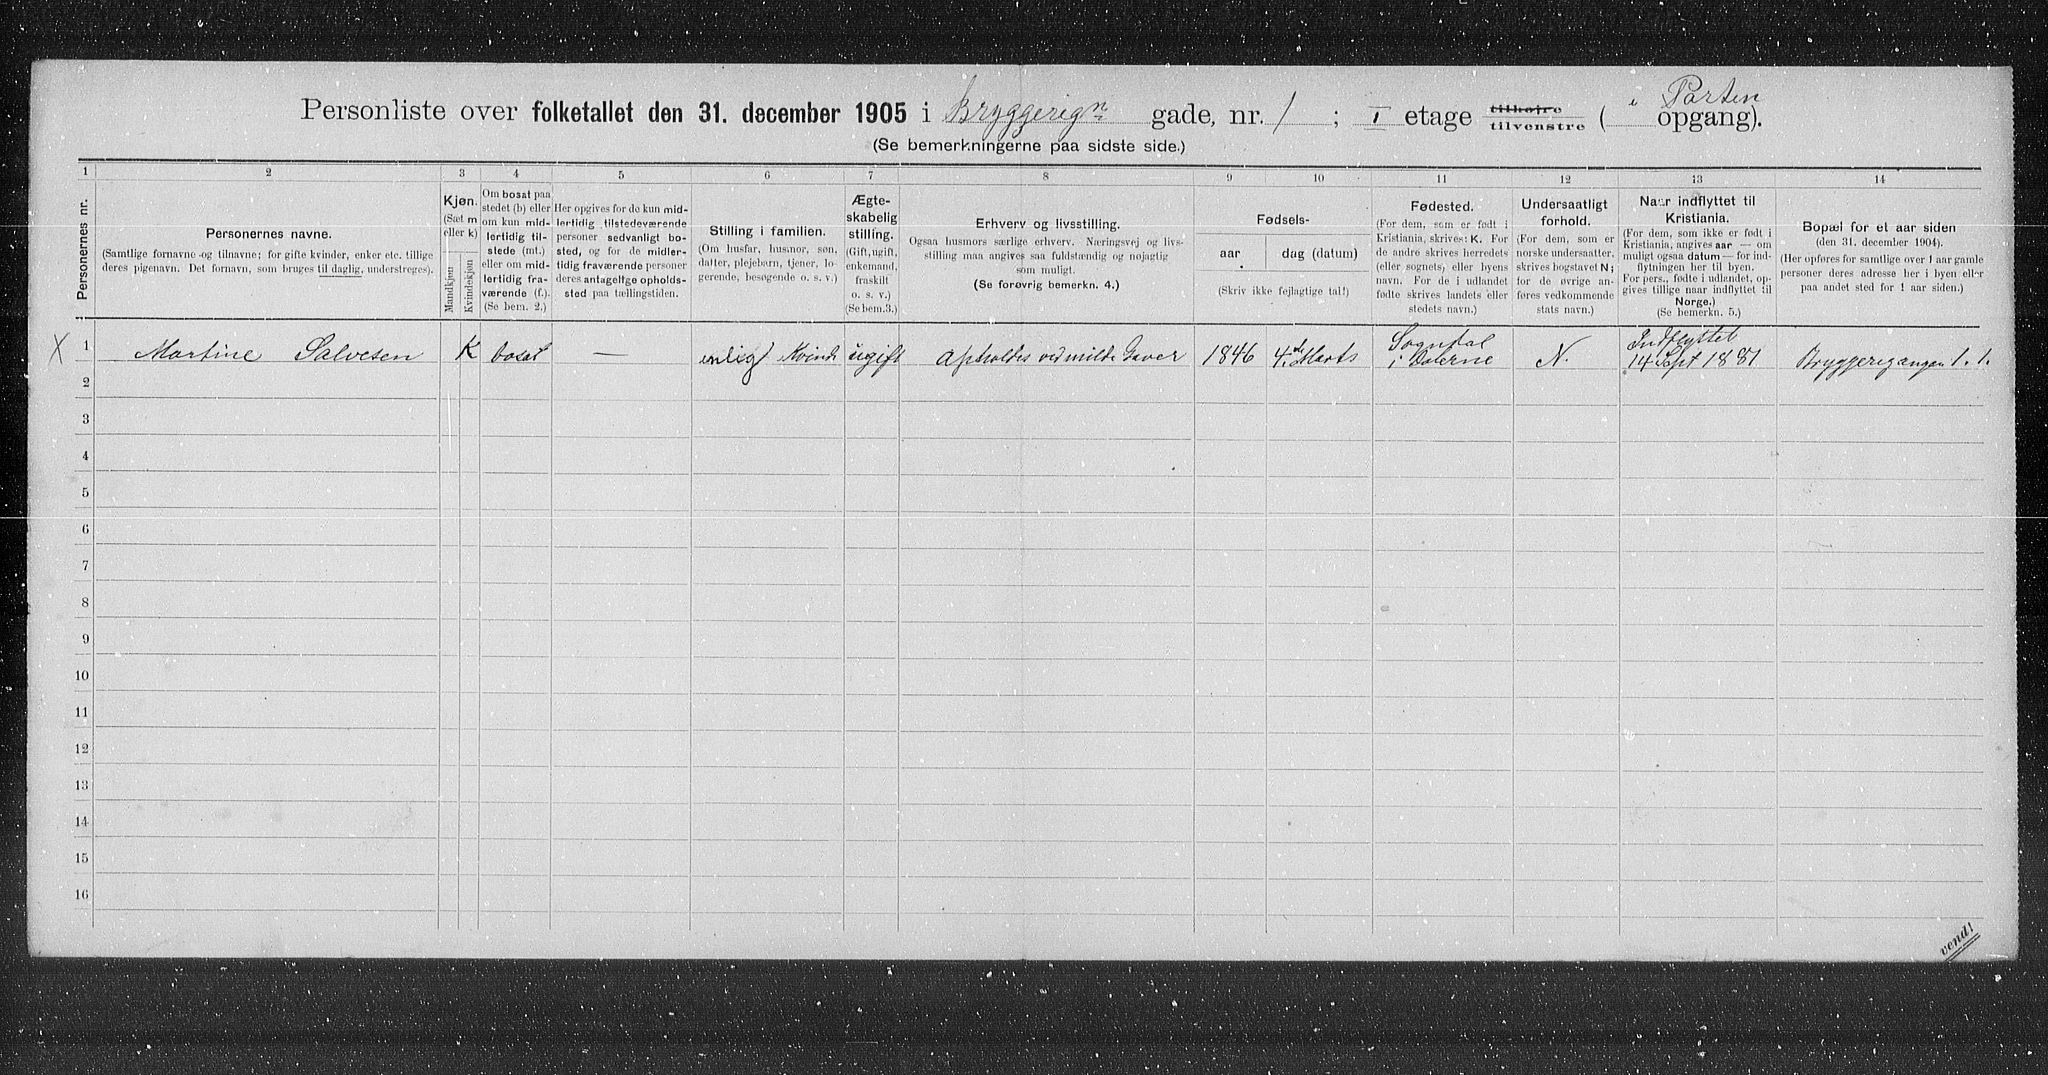 Personliste over folketallet den 31. december 1905 i Bryggerign gade, nr. 1 ; I etage tilhøire tilvenstre ( i Porten opgang).
(Se bemerkningerne paa sidste side.)
1 2 3 4 5 6 7 8 9 10 11 12 13 14
Personernes nr.
Personernes navne.
(Samtlige fornavne og tilnavne; for gifte kvinder, enker etc. tillige
deres pigenavn. Det fornavn, som bruges til daglig, understreges).
Kjøn.
(Sæt m
eller k)
Mandkjøn
Kvindekjøn
Om bosat paa
stedet (b) eller
om kun mid-
lertidig til-
stede (mt.)
eller om mid-
lertidig fra-
værende (f.).
(Se bem. 2.)
Her opgives for de kun mid-
lertidig tilstedeværende
personer sedvanlig bo-
sted, og for de midler-
tidig fraværende personer
deres antagelige opholds-
sted paa tællingstiden.
Stilling i familien.
(Om husfar, husmor, søn,
datter, plejebarn, tjener, lo-
gerende, besøgende o. s. v.)
Ægte-
skabelig
stilling.
(Gift, ugift,
enkemand,
fraskilt
o. s. v.)
(Se bem. 3.)
Erhverv og livsstilling.
Ogsaa husmors særlige erhverv. Næringsvej og livs-
stilling maa angives saa fuldstændig og nøjagtig
som muligt.
(Se forøvrig bemerkn. 4.)
Fødsels-
aar
dag (datum)
(Skriv ikke fejlagtige tal!)
Fødested.
(For dem, som er født i
Kristiania, skrives: K. For
de andre skrives herredets
(eller sognets) eller byens
navn. For de i udlandet
fødte skrives landets eller
stedets navn.)
Undersaatligt
forhold.
(For dem, som er
norske undersaatter,
skrives bogstavet N;
for de øvrige an-
føres vedkommende
stats navn.)
Naar indflyttet til
Kristiania.
(For dem, som ikke er født i
Kristiania, angives aar — om
muligt ogsaa datum — for ind-
flytningen her til byen.
For pers., fødte i udlandet, op-
gives tillige naar indflyttet til
Norge.)
(Se bemerkn. 5.)
Bopæl for et aar siden
(den 31. december 1904).
(Her opføres for samtlige over 1 aar gamle
personer deres adresse her i byen eller
paa andet sted for 1 aar siden.)
X 1 Martine Salvesen K bosat — enlig Kvinde ugift Opholdes ved milde Gaver 1846 4de Marts Sogndal i Dalerne N. Indflyttet 14 Sept 1881 Bryggerigangen 1. 1.
2
3
4
5
6
7
8
9
10
11
12
13
14
15
16
vend!